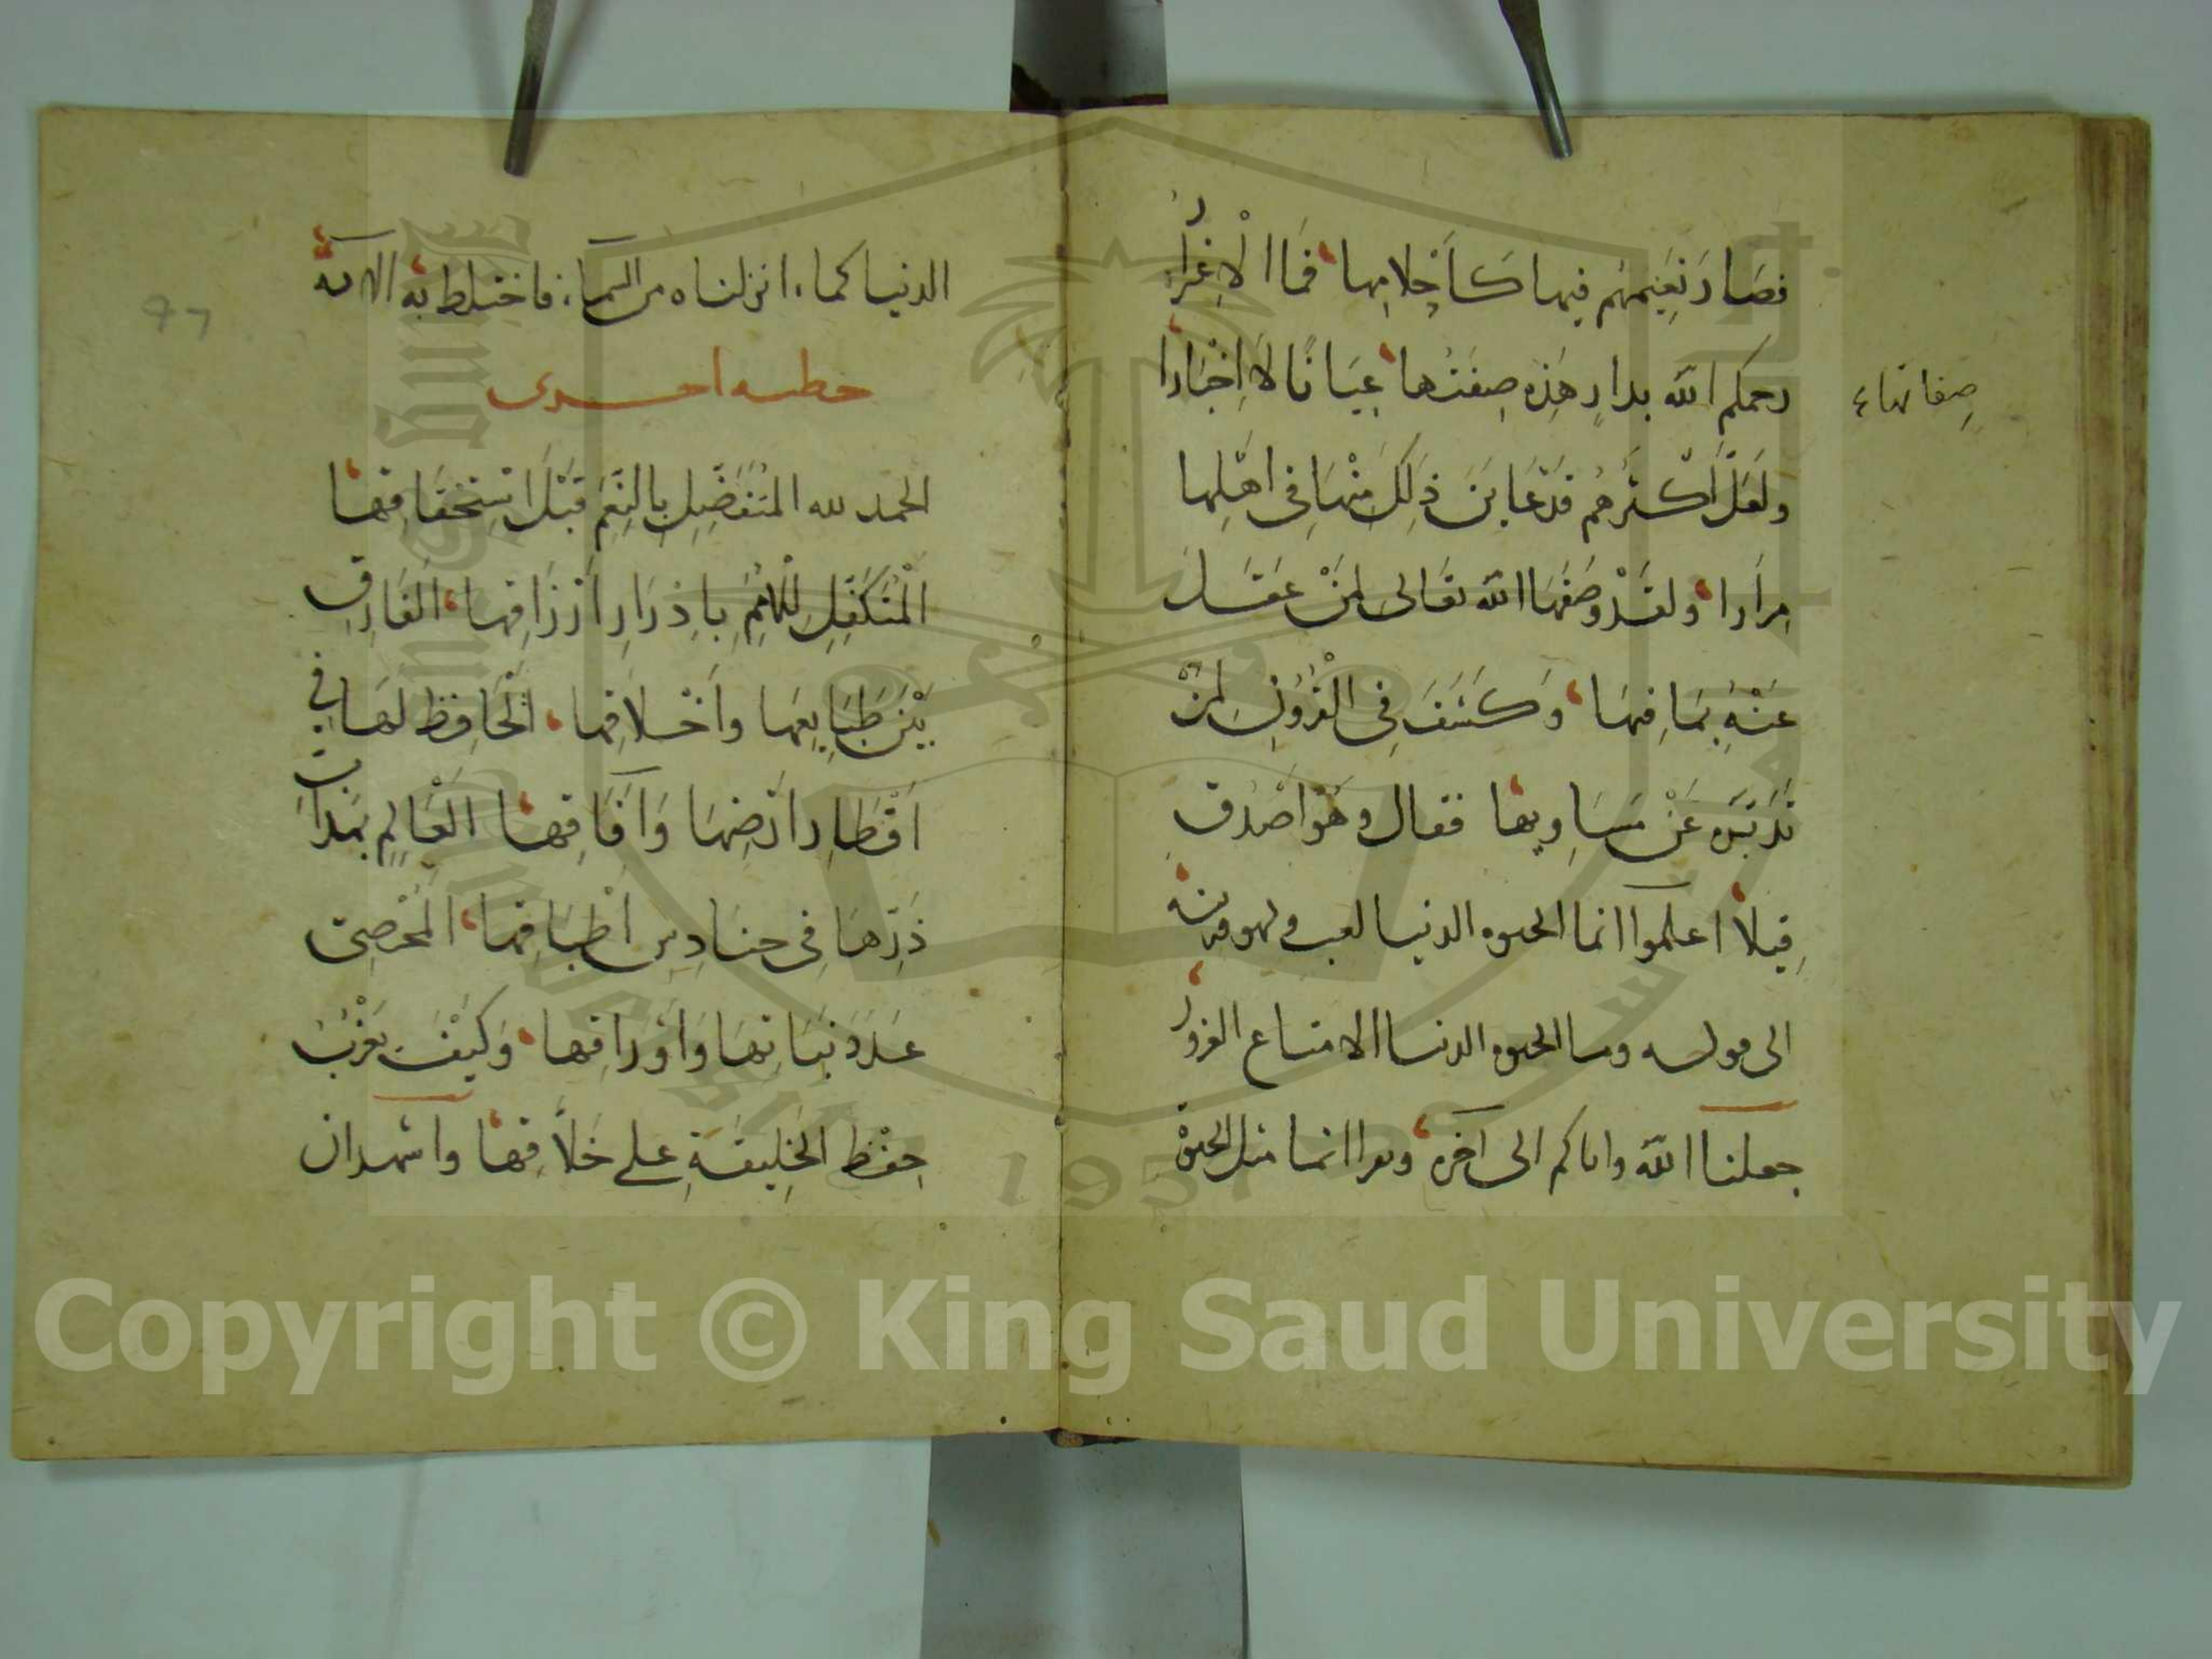 فصَارَ نَعِيمُهُم فيها كَأَحْلامِها فَمَا الْاِغْترارُ
رحمكم الله بدارٍ هَذِه صِفَتُها عِيَانًا لَا اِخْبَارا
صِفاتها
ولَعَلَّ اَكْثَرهُم قَدْ عَايَنَ ذَلِكَ مِنْهَا فِى اَهْلِها
مِرَارا ولقَدْ وَصَفَهَا الله تعَالى لمَنْ عَقَلَ
عَنْهُ بمَا فِيهَا وَكَشَفَ فِى الْقُرْونِ لمَنْ
تَدَبَّرَه عَنْ مَسَاوِيها فقال وهُوَ اَصْدَق
قِيلاً اعلموا انما الحيوه الدنيا لعب ولهو وزينه
الى قوله وما الحيوه الدنيا الا متاع الغرور
جعلنا الله واياكم الى آخره ويقرا انما مثل الحيوة
الدنيا كماء انزلناه من السماء فاختلط به الآية
خطبه اخرى
الحمد لله المُتَفَضِّلِ بِالنِّعَمِ قَبْلَ اسْتِحْقَاقِها
الْمُتَكَفِّلِ لِلْاُمَمِ بِاِدْرَارِ اَرْزَاقِها الْفَارِقِ
بَيْنَ طَبَايِعِهَا وَاَخْلَاقِها الْحَافِظِ لهَا فِي
اَقْطَارِ اَرْضِهَا وَآفَاقِها الْعَالِمِ بمَدَاتِ
ذَرِّهَا فِى حنَادِسِ اَطْبَاقِها الْمُحْصِى
عَدَدَ نَبَاتِهَا وَاَوْرَاقِها وَكَيْفَ يَعْزُبُ
حِفْظُ الخَلِيقَةِ على خَلَّاقِها واشهد ان